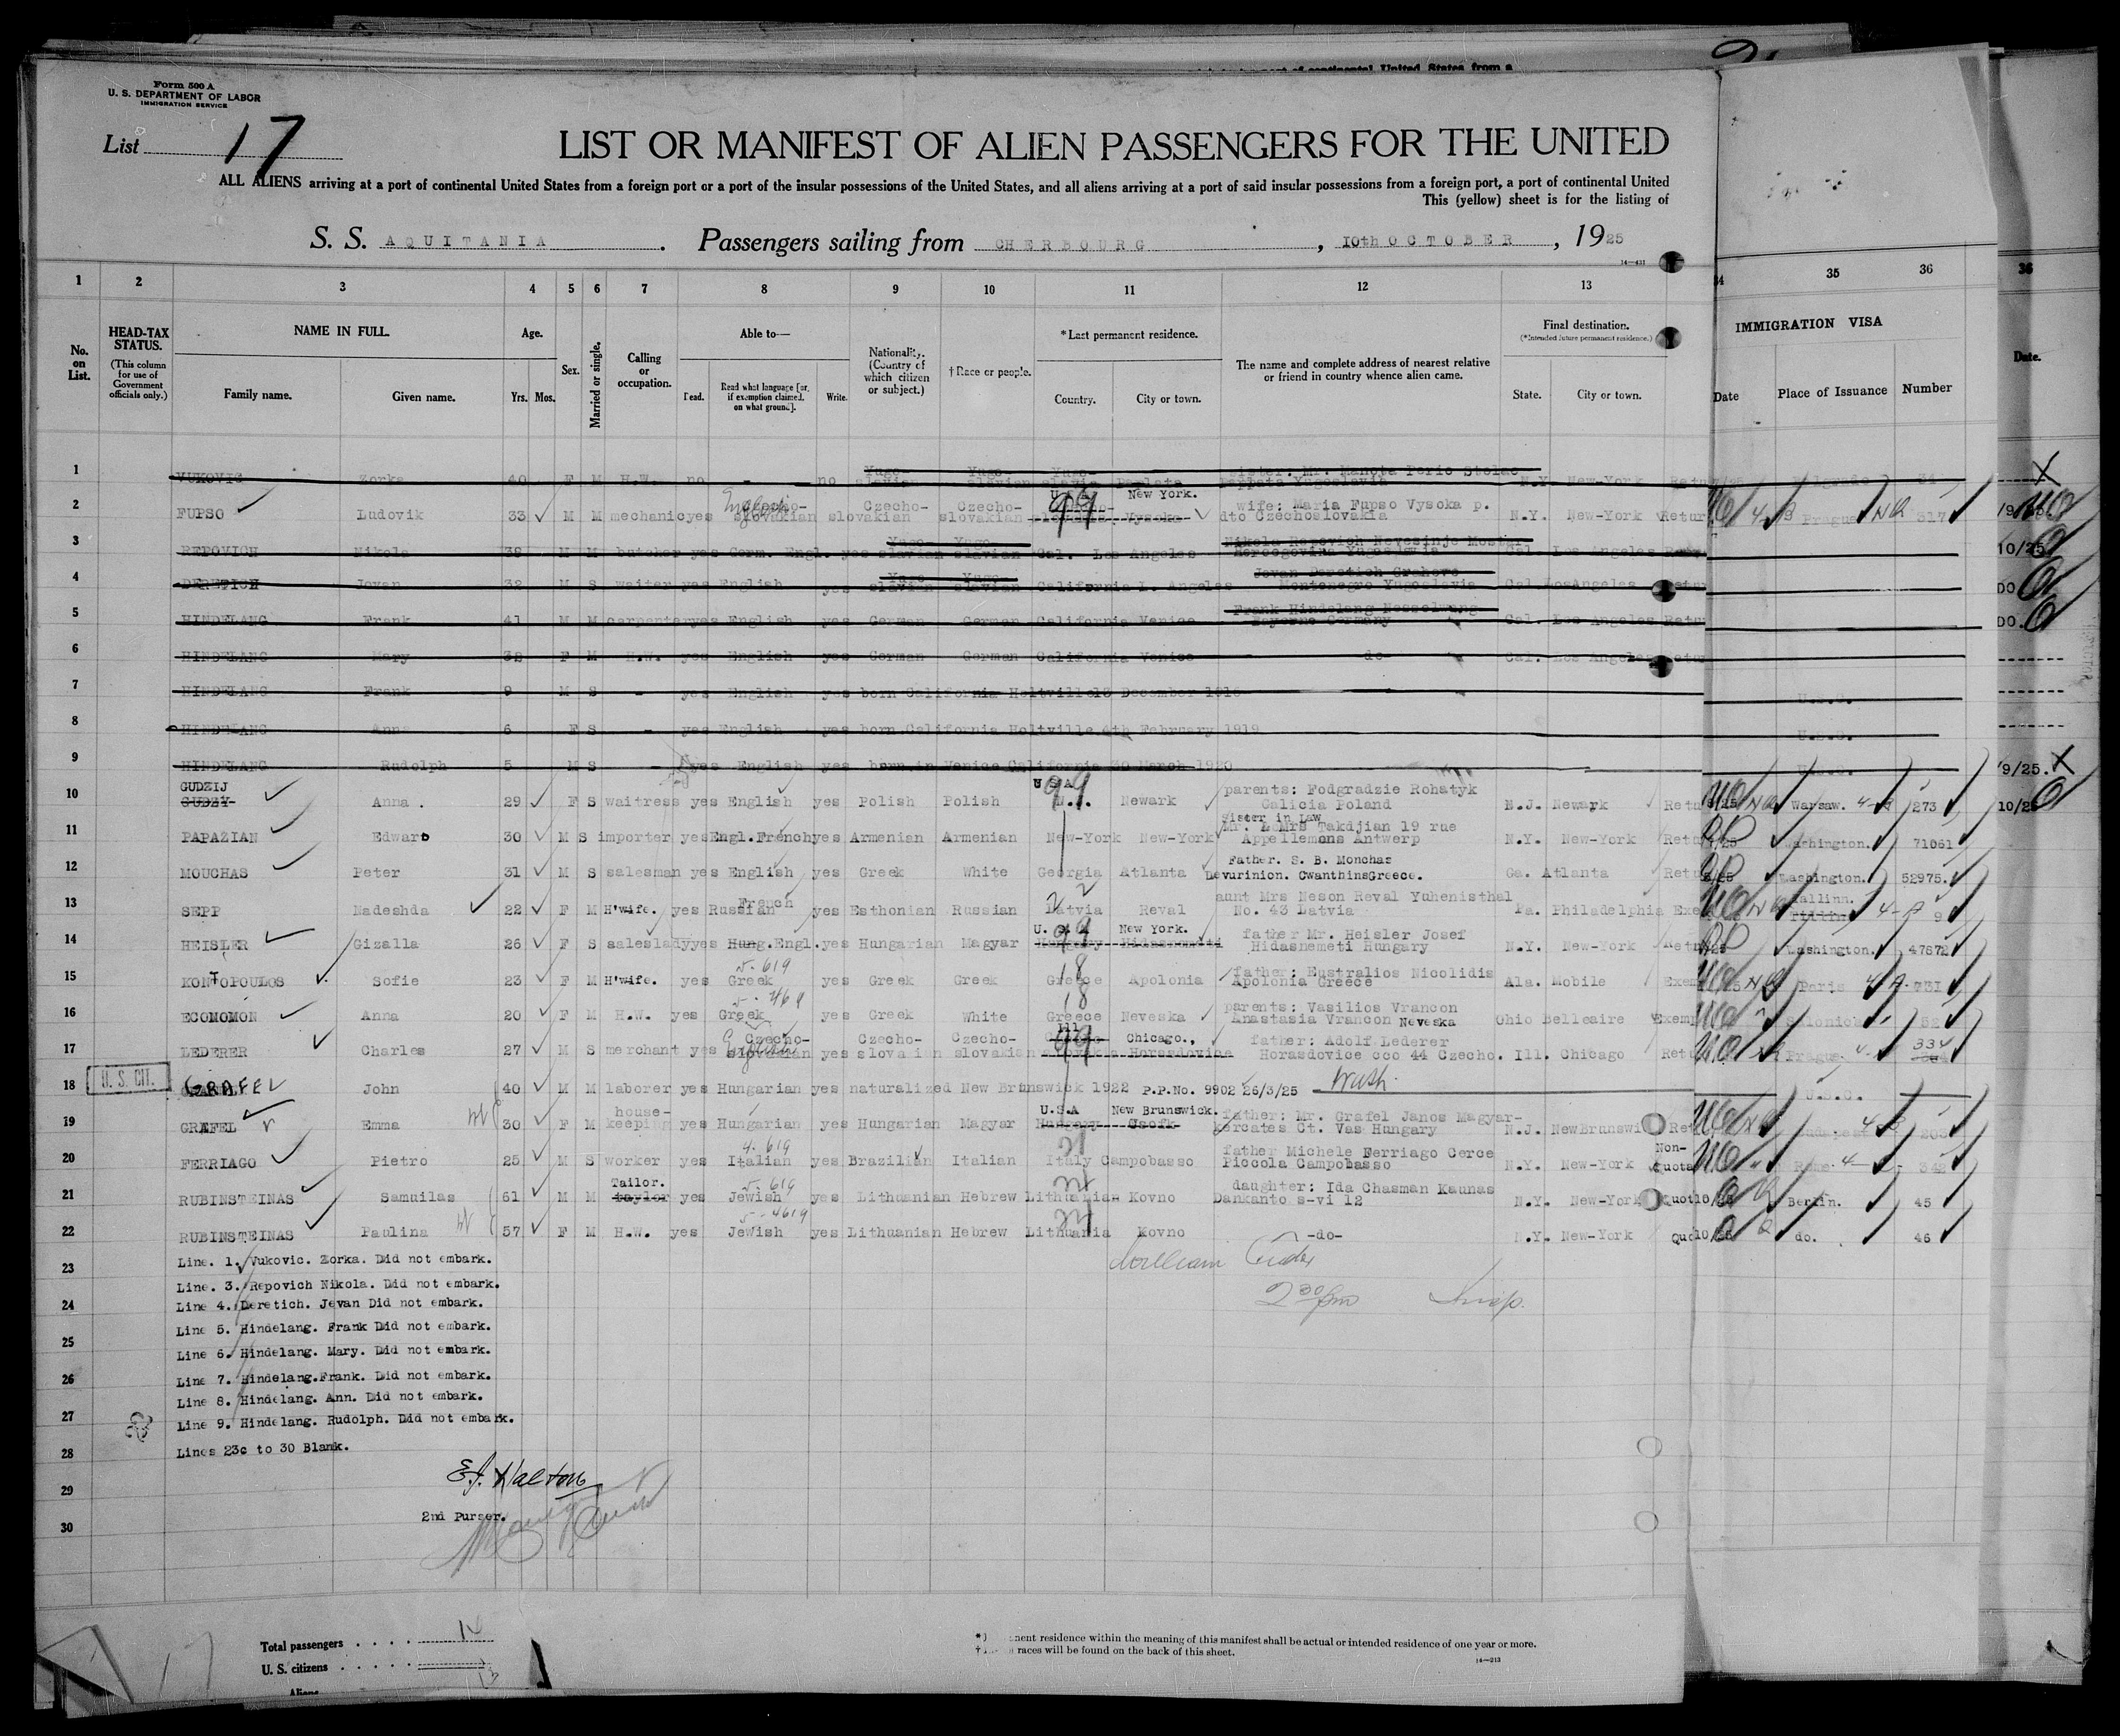 Form 500 A
U. S. DEPARTMENT OF LABOR
IMMIGRATION SERVICE
List 17
LIST OR MANIFEST OF ALIEN PASSENGERS FOR THE UNITED
ALL ALIENS arriving at a port of continental United States from a foreign port or a port of the insular possessions of the United States, and all aliens arriving at a port of said insular possessions from a foreign port, a port of continental United
This (yellow) sheet is for the listing of
S. S. AQUITANIA. Passengers sailing from CHERBOURG, 10th OCTOBER, 1925
14—431
1 2 3 4 5 6 7 8 9 10 11 12 13 34 35 36 36
No. on List.
HEAD-TAX STATUS.
(This column for use of Government officials only.)
NAME IN FULL.
Family name. Given name.
Age.
Yrs. Mos.
Sex.
Married or single.
Calling or occupation.
Able to—
Read. Read what language [or, if exemption claimed, on what ground]. Write.
Nationality. (Country of which citizen or subject.)
†Race or people.
*Last permanent residence.
Country. City or town.
The name and complete address of nearest relative or friend in country whence alien came.
Final destination.
(*Intended future permanent residence.)
State. City or town.
IMMIGRATION VISA
Date Place of Issuance Number
Date.
1 VUKOVIC Zorka 40 F M H.W. no - no Yugo-slavian Yugo-slavian Yugo-slavia sister: Mr. N.Y. New-York
2 FUPSO Ludovik 33 M M mechanic yes English Czecho-slovakian Czecho-slovakian Czecho-slovakian U.S.A. 99 New York. Vysoka wife: Maria Fupso Vysoka p. dto Czechoslovakia N.Y. New-York Retur Prague NQ 317
3 REPOVICH Nikola 39 M M butcher yes Germ. Engl. yes Yugo-slavian Yugo-slavian Cal. Los Angeles Nikola Repovich Nevesinje Mostar Hercegovina Yugoslavia Cal. Los Angeles 10/25
4 DERETICH Jovan 32 M S waiter yes English yes Yugo-slavian Yugo-slavian California L. Angeles Jovan Deretich Grahovo Montenegro Yugoslavia Cal. LosAngeles DO
5 HINDELANG Frank 41 M M carpenter yes English yes German German California Venice Frank Hindelang Nesselwang Bayerne Germany Cal. Los Angeles DO.
6 HINDELANG Mary 32 F M H.W. yes English yes German German California Venice do Cal. Los Angeles
7 HINDELANG Frank 9 M S - yes English yes born California Holtville 18 December 1916 U.S.C.
8 HINDELANG Anna 6 F S - yes English yes born California Holtville 4th February 1919 U.S.C.
9 HINDELANG Rudolph 5 M S - yes English yes born in Venice California 30 March 1920 U.S.C. /9/25. X
10 GUDZIJ GUDZY Anna. 29 F S waitress yes English yes Polish Polish U.S.A. 99 N.J. Newark parents: Fodgradzie Rohatyk Galicia Poland N.J. Newark Retu Warsaw. 273 10/25
11 PAPAZIAN Edward 30 M S importer yes Engl.French yes Armenian Armenian New-York New-York Sister in Law Mr. & Mrs Takdjian 19 rue Appellemons Antwerp N.Y. New-York Retu Washington. 71061
12 MOUCHAS Peter 31 M S salesman yes English yes Greek White Georgia Atlanta Father. S. B. Monchas Devurinion. CwanthinsGreece. Ga. Atlanta Retu Washington. 52975.
13 SEPP Nadeshda 22 F M H'wife. yes Russian French yes Esthonian Russian Latvia Reval aunt Mrs Neson Reval Yuhenisthal No. 43 Latvia Pa. Philadelphia Exe Tallinn. 9
14 HEISLER Gizalla 26 F S saleslady yes Hung.Engl. yes Hungarian Magyar U. S. A. 99 New York. Hungary Hidasnemeti father Mr. Heisler Josef Hidasnemeti Hungary N.Y. New-York Retu Washington. 47872
15 KONTOPOULOS Sofie 23 F M H'wife. yes Greek 5-619 yes Greek Greek Greece 18 Apolonia father: Eustralios Nicolidis Apolonia Greece Ala. Mobile Exem Paris 731
16 ECOMOMON Anna 20 F M H.W. yes Greek yes Greek White Greece 18 Neveska parents: Vasilios Vrancon Anastasia Vrancon Neveska Ohio Bellcaire Exemp Salonica 52
17 LEDERER Charles 27 M S merchant yes English Czecho-slovakian yes Czecho-slovakian Czecho-slovakian Ill. 99 Chicago., Horasdovine father: Adolf Lederer Horasdovice cco 44 Czecho. Ill. Chicago Retu Prague 334
U. S. CIT.
18 GRAFEL John 40 M M laborer yes Hungarian yes naturalized New Brunswick 1922 P.P.No. 9902 26/3/25 Wash. U.S.C.
19 GRAFEL Emma 30 F M house-keeping yes Hungarian yes Hungarian Magyar U.S.A New Brunswick. Hungary Csofk father: Mr. Grafel Janos Magyar-kercates Ct. Vas Hungary N.J. NewBrunswi Ret Budapest 203
20 FERRIAGO Pietro 25 M S worker yes Italian 4.619 yes Brazilian Italian Italy 21 Campobasso father Michele Ferriago Cerce Piccola Campobasso N.Y. New-York Non-Quota Rome 342
21 RUBINSTEINAS Samuilas 61 M M Tailor. taylor yes Jewish 5-619 yes Lithuanian Hebrew Lithuania Kovno daughter: Ida Chasman Kaunas Dankanto s-vi 12 N.Y. New-York Quot Berlin. 45
22 RUBINSTEINAS Paulina 57 F M H.W. yes Jewish 5-4619 yes Lithuanian Hebrew Lithuania Kovno -do- N.Y. New-York Quo do. 46
23
Line. 1. Vukovic. Zorka. Did not embark.
Line. 3. Repovich Nikola. Did not embark.
24
Line 4. Deretich. Jevan Did not embark.
Line 5. Hindelang. Frank Did not embark.
25
Line 6. Hindelang. Mary. Did not embark.
26
Line 7. Hindelang.Frank. Did not embark.
Line 8. Hindelang. Ann. Did not embark.
27
Line 9. Hindelang. Rudolph. Did not embark.
28
Lines 23c to 30 Blank.
William
2 30 pm Insp.
E.J. Walton
29
2nd Purser.
30
17
Total passengers . . . . 14
U. S. citizens . . . . .
Aliens
13
* nent residence within the meaning of this manifest shall be actual or intended residence of one year or more.
† races will be found on the back of this sheet.
14—213